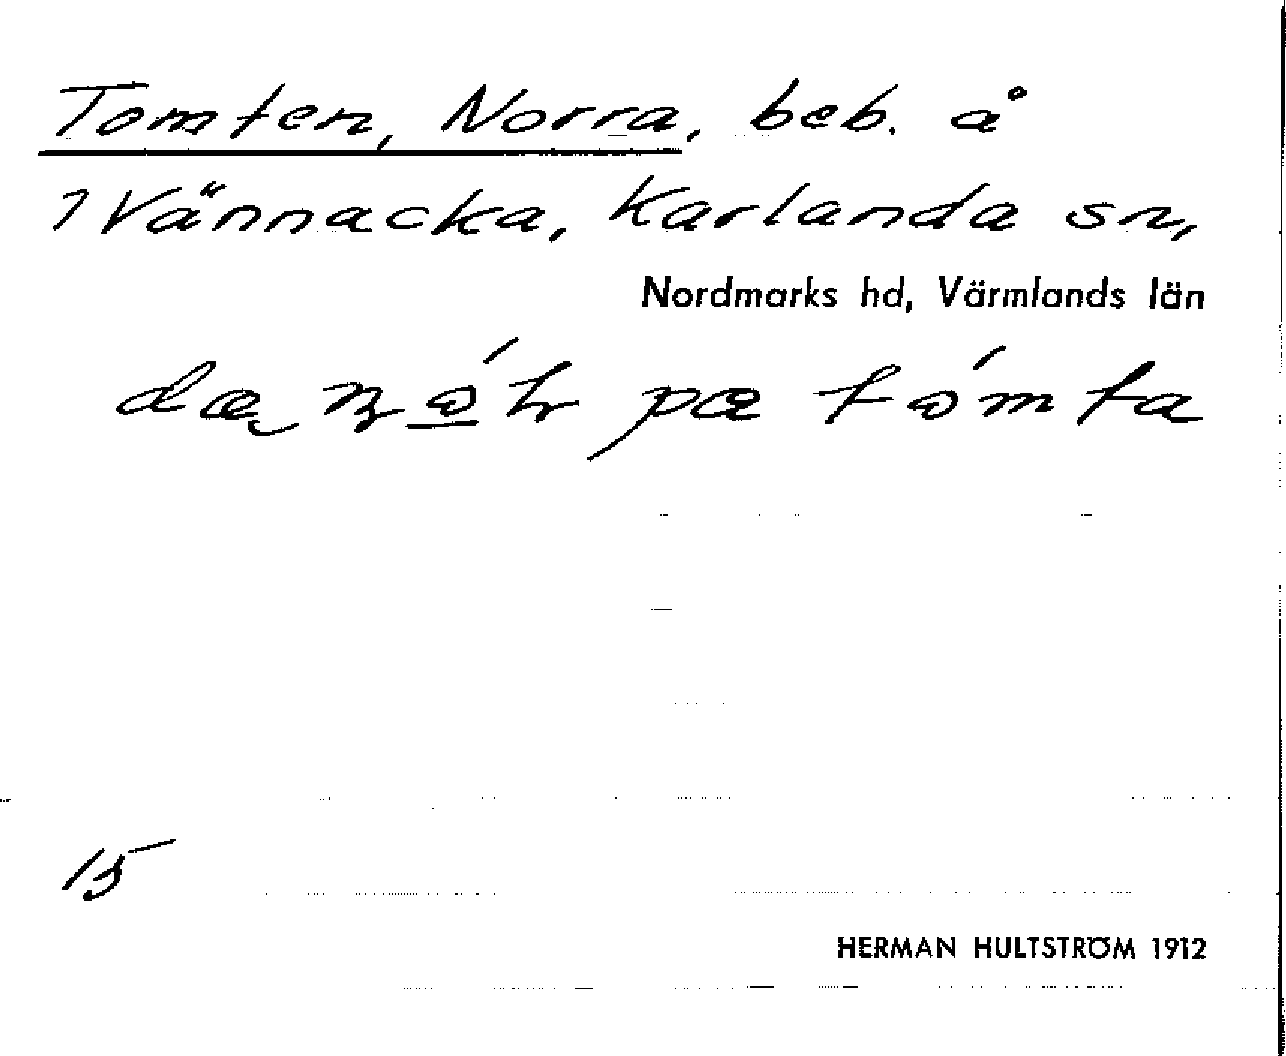 Tomten, Norra, beb. å
1 Vännacka, Karlanda sn,
Nordmarks hd, Värmlands län
pa
15
HERMAN HULTSTRÖM 1912